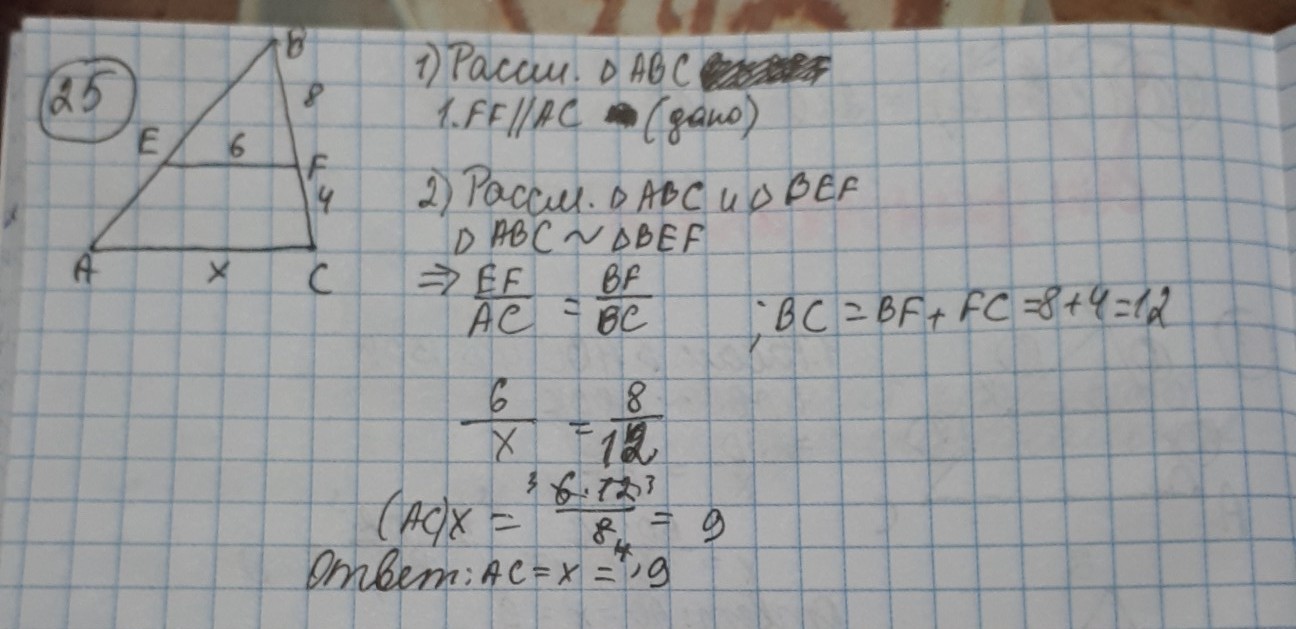 25
B
8
E 6 F
4
A x C
1) Рассм. △ ABC
1. FF//AC (дано)
2) Рассм. △ ABC и △ BEF
△ ABC ~ △BEF
⇒ EF/AC = BF/BC ; BC = BF + FC = 8+4=12
6/x = 8/12
(AC)x = ³6·12³/8₄ = 9
Ответ: AC = x = 9